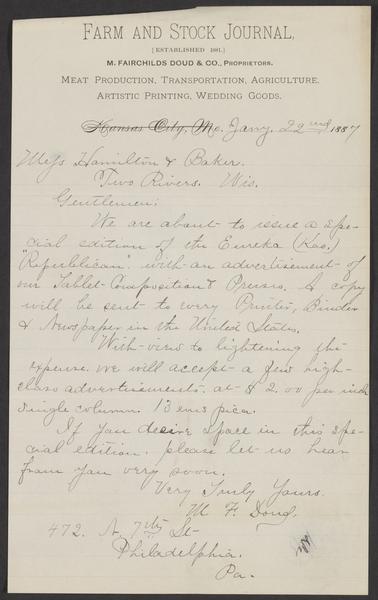 FARM AND STOCK JOURNAL,
[ESTABLISHED 1881.]
M. FAIRCHILDS DOUD & CO., PROPRIETORS.
MEAT PRODUCTION, TRANSPORTATION, AGRICULTURE.
ARTISTIC PRINTING, WEDDING GOODS.
Kansas City, Mo. Jany. 22nd 1887
Mess Hamilton & Baker.
Two Rivers. Wis.
Gentlemen;
We are about to issue a spe-
cial edition of the Eureka (Kas.)
"Republican" with an advertisement of
our Tablet Composition & Presses. A copy
will be sent to every Printer, Binder
& Newspaper in the United States.
With view to lightening the
expense. we will accept a few high-
class advertisements. at $2.00 per inch
single column. 13 ems pica.
If you desire space in this spe-
cial edition. please let us hear
from you very soon.
Very Truly Yours.
M. F. Doud.
472. N. 7th St-
Philadelphia.
Pa.